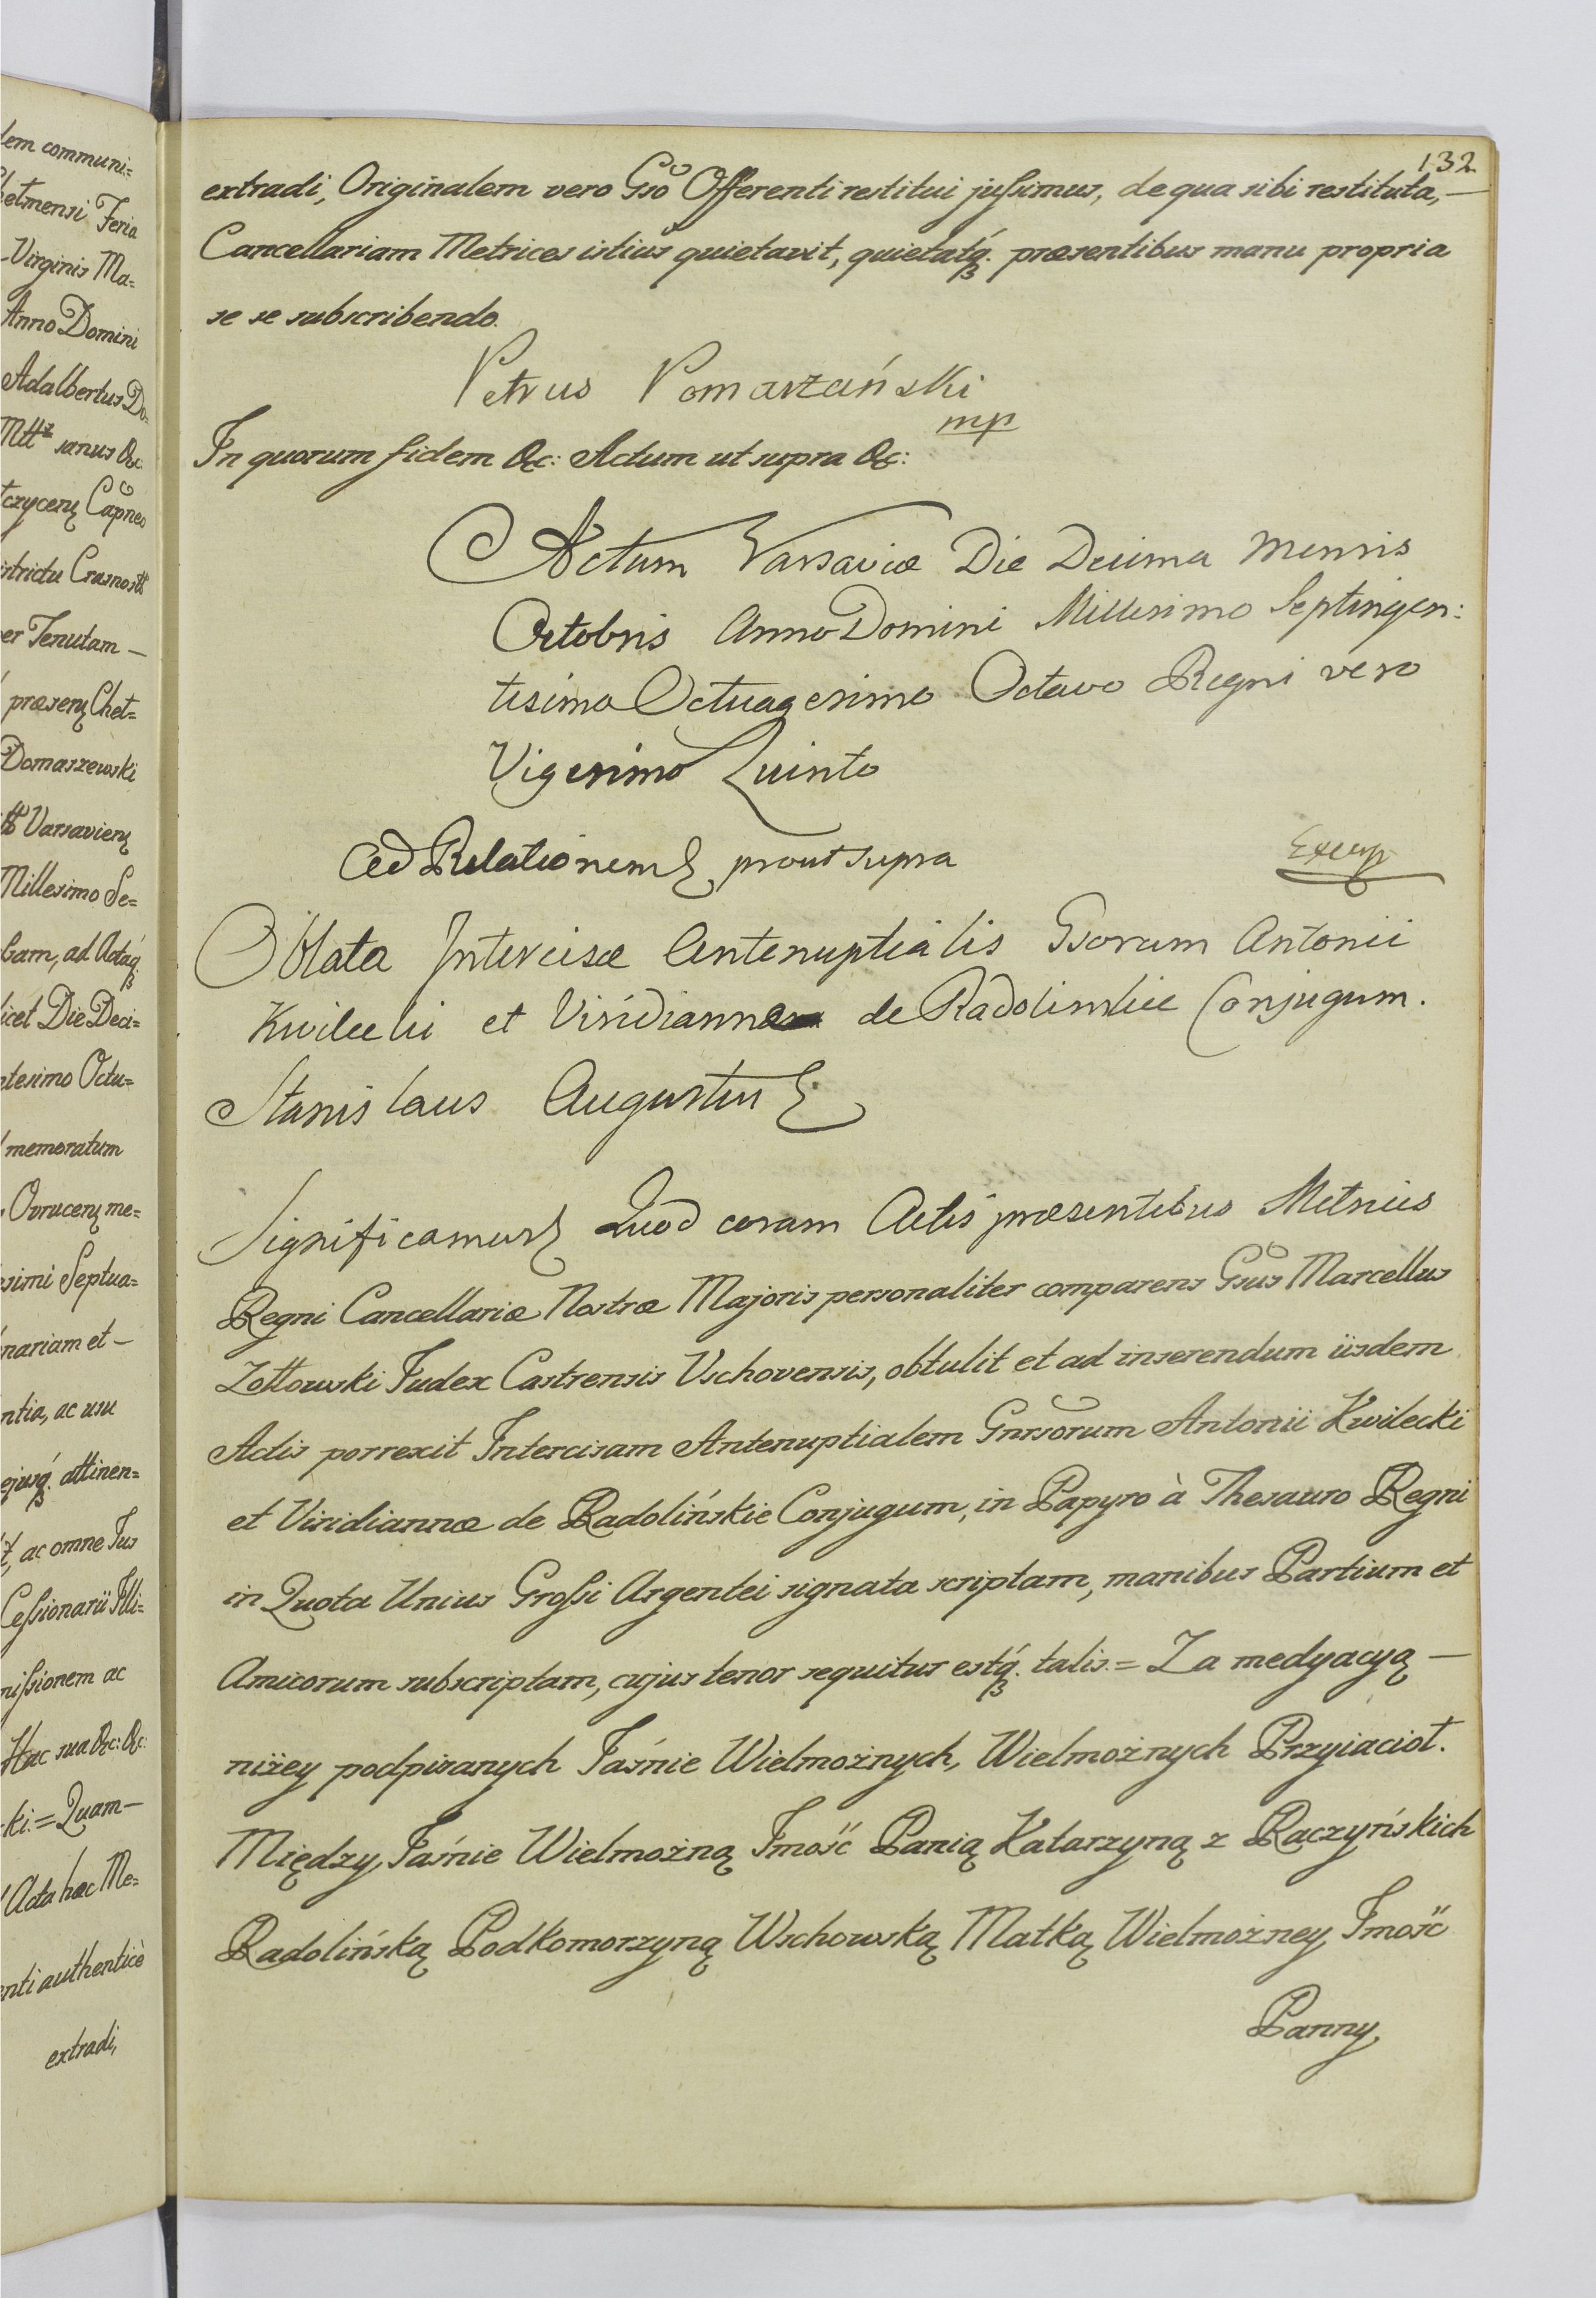 dem communi=
hetmensi Feria
Virginis Ma=
Anno Domini
Adalbertus Do=
sanus &c:
strictu Crasnostt
per Tenutam —
præsenę Chet=
Domaszewski
Varsavienę
Millesimo Se=
bam, ad Actaq́3
licet Die Deci=
ntesimo Octu=
memoratum
Ovrucenę me=
esimi Septua=
nariam et —
ntia, ac usu
ejusq́3 attinen=
ac omne Jus
Ceſsionarii Illi=
miſsionem ac
Hac sua &c: &c:
ki. = Quam —
Acta hæc Me=
enti authenticè
extradi,
132
extradi, Originalem vero Gso Offerenti restitui juſsimus, de qua sibi restituta, —
Cancellariam Metrices istius quietavit, quietatq́3 præsentibus manu propria
se se subscribendo.
Petrus Pomarzański
mp
In quorum fidem &c: Actum ut supra &c:
Actum Varsaviæ Die Decima Mensis
Octobris Anno Domini Millesimo Septingen:
tesimo Octuagesimo Octavo Regni vero
Vigesimo Quinto
Ad Relationem prout supra
Oblata Intercisæ Antenuptialis Gsorum Antonii
Kwilecki et Viridiannæ de Radolinskie Conjugum.
Stanislaus Augustus
Significamus Quod coram Actis præsentibus Metrices
Regni Cancellariæ Nostræ Majoris personaliter comparens Gsus Marcellus
Zołtowski Judex Castrensis Vschovensis, obtulit et ad inserendum iisdem
Actis porrexit Intercisam Antenuptialem Gnrsorum Antonii Kwilecki
et Viridiannæ de Radolińskie Conjugum, in Papyro à Thesauro Regni
in Quota Unius Groſsi Argentei signata scriptam, manibus Partium et
Amicorum subscriptam, cujus tenor sequitur estq́3 talis. = Za medyacyą —
niżey podpisanych Jaśnie Wielmożnych, Wielmożnych Przyiacioł.
Między Jaśnie Wielmożną Jmość Panią Katarzyną z Raczyńskich
Radolińską Podkomorzyną Wschowską Matką Wielmożney Jmość
Panny